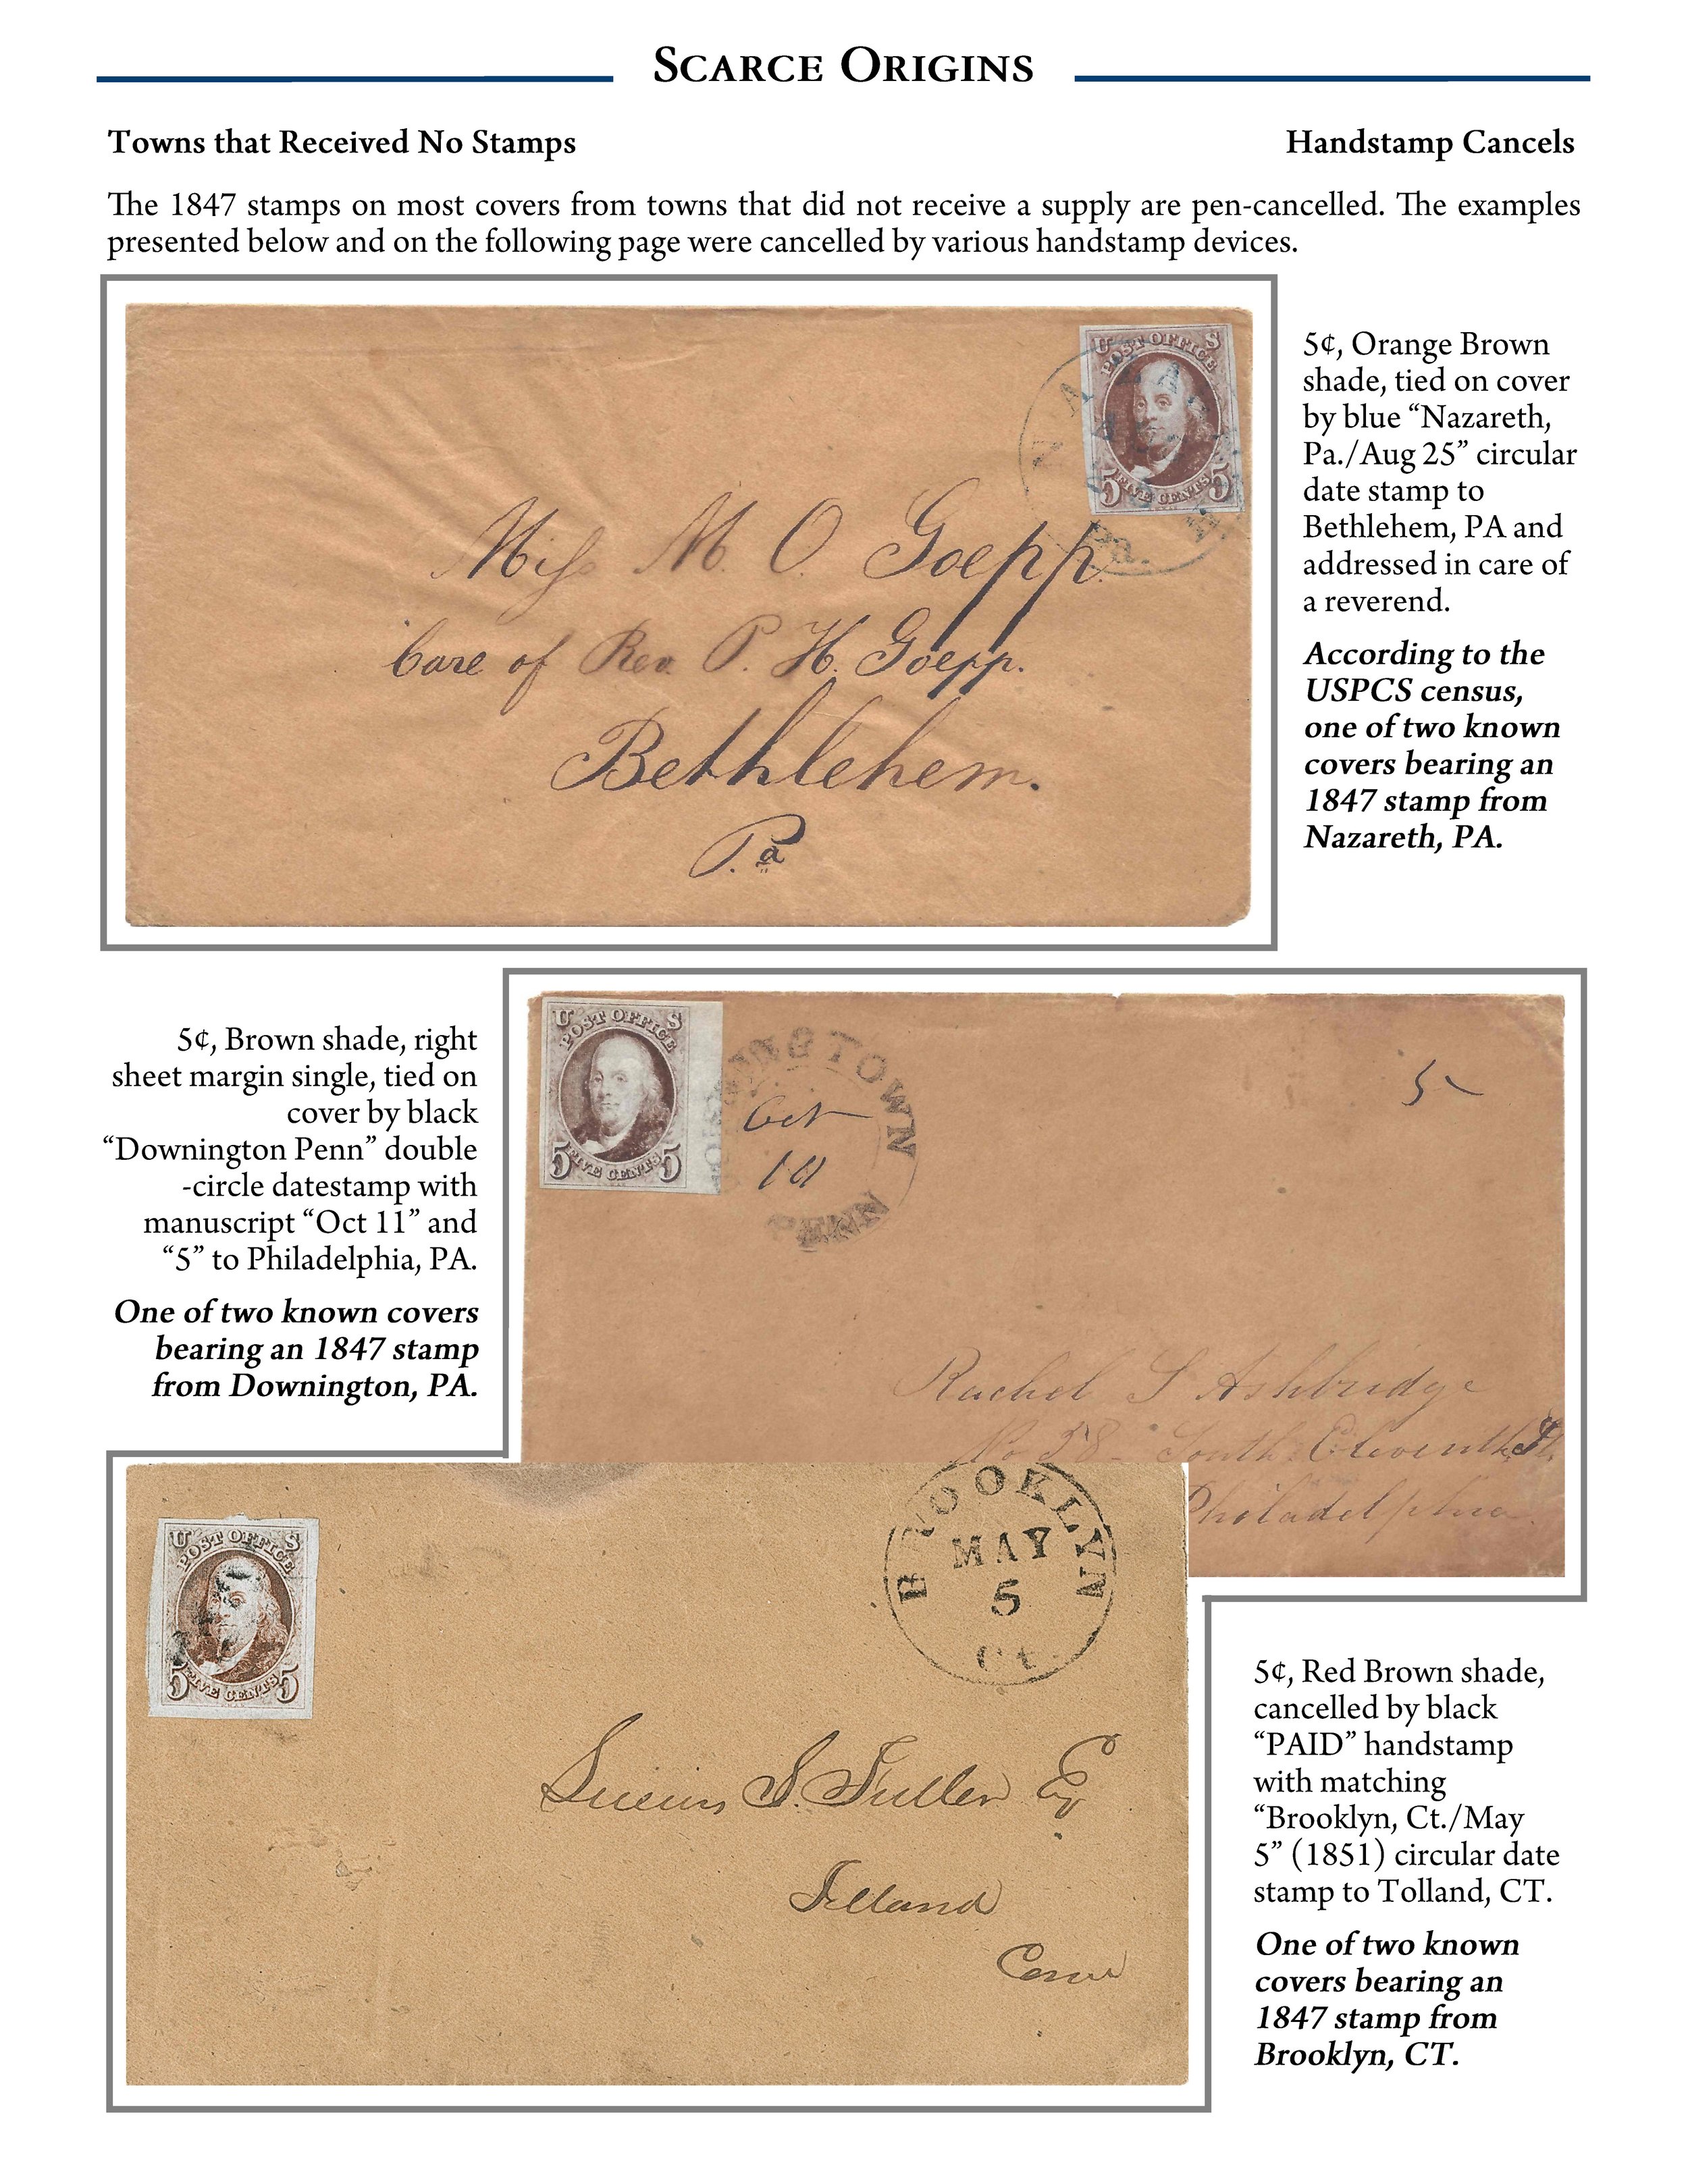 Scarce Origins
Towns that Received No Stamps
Handstamp Cancels
The 1847 stamps on most covers from towns that did not receive a supply are pen-cancelled. The examples
presented below and on the following page were cancelled by various handstamp devices.
U S
POST OFFICE
5 FIVE CENTS 5
Pa.
Miss M. O. Goepp.
Care of Rev. P. H. Goepp.
Bethlehem.
Pa
5¢, Orange Brown
shade, tied on cover
by blue “Nazareth,
Pa./Aug 25” circular
date stamp to
Bethlehem, PA and
addressed in care of
a reverend.
According to the
USPCS census,
one of two known
covers bearing an
1847 stamp from
Nazareth, PA.
5¢, Brown shade, right
sheet margin single, tied on
cover by black
“Downington Penn” double
-circle datestamp with
manuscript “Oct 11” and
“5” to Philadelphia, PA.
One of two known covers
bearing an 1847 stamp
from Downington, PA.
U S
POST OFFICE
5 FIVE CENTS 5
NGTOWN
Oct
11
PENN
5
Rachel S Ashbridge
No 28 South Eleventh St.
Philadelphia
U S
POST OFFICE
5 FIVE CENTS 5
BROOKLYN
MAY
5
Ct.
Lucius S. Fuller Eq
Tolland
Conn
5¢, Red Brown shade,
cancelled by black
“PAID” handstamp
with matching
“Brooklyn, Ct./May
5” (1851) circular date
stamp to Tolland, CT.
One of two known
covers bearing an
1847 stamp from
Brooklyn, CT.